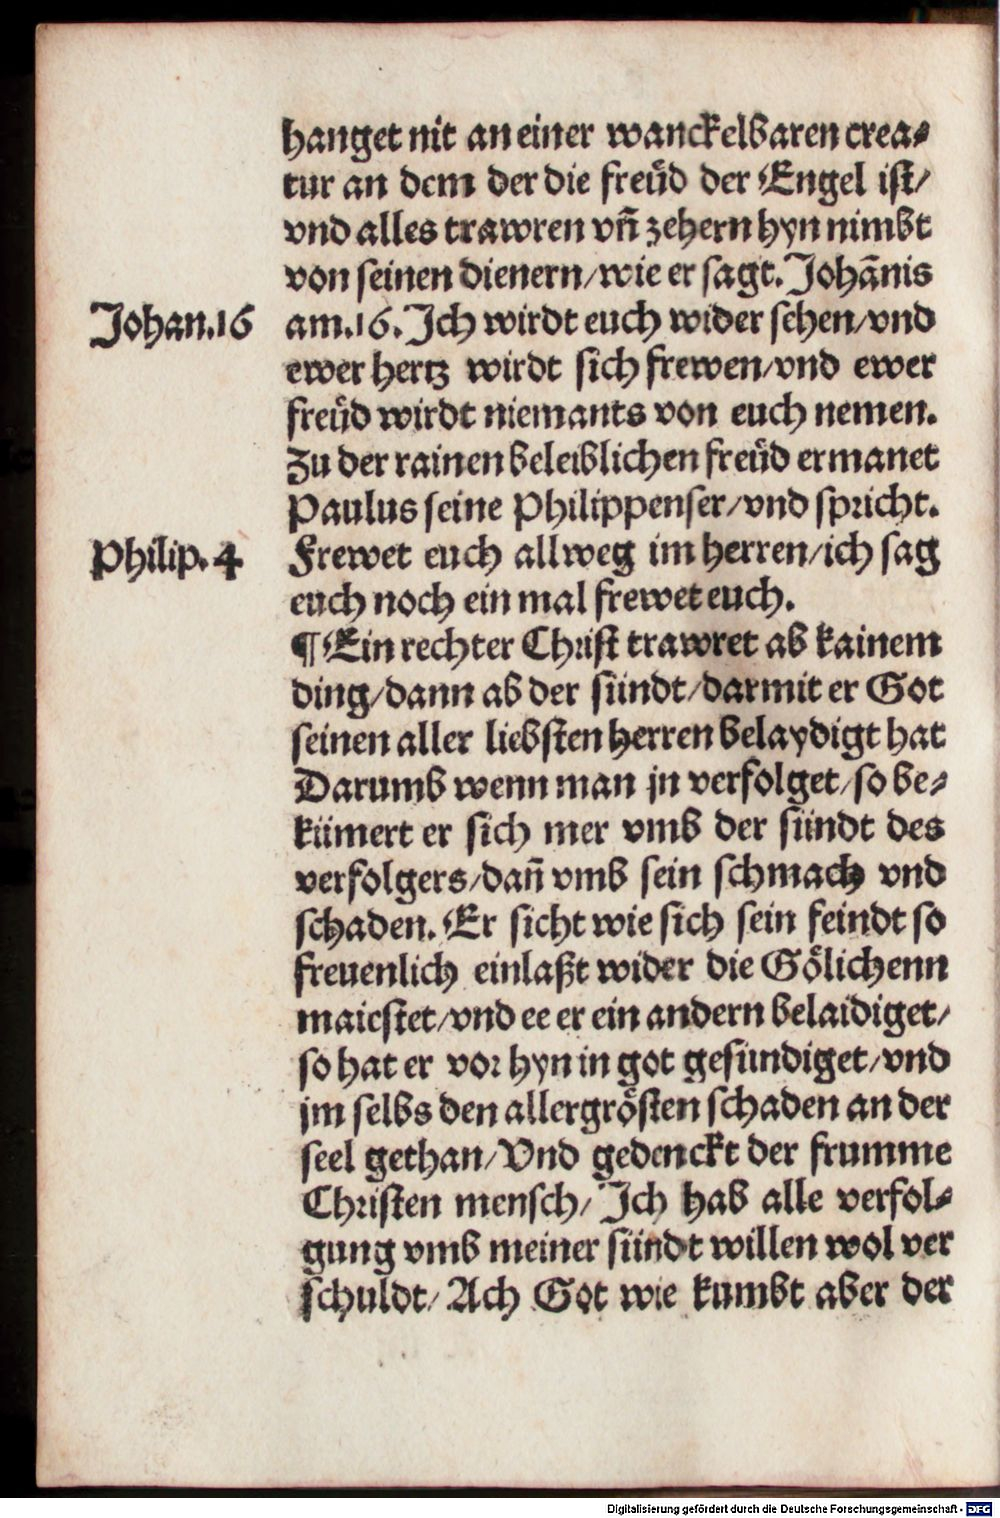 hanget nit an einer wanckelbaren crea⸗
tur an dem der die freüd der Engel ist/
vnd alles trawren vñ zehern hyn nimbt
von seinen dienern/wie er sagt. Johãnis
Johan.16 am.16. Ich wirdt euch wider sehen/vnd
ewer hertz wirdt sich frewen/vnd ewer
freüd wirdt niemants von euch nemen.
Zu der rainen beleiblichen freüd ermanet
Paulus seine Philippenser/vnd spricht.
Philip. 4 Frewet euch allweg im herren/ich sag
euch noch ein mal frewet euch.
¶ Ein rechter Christ trawret ab kainem
ding/dann ab der sündt/darmit er Got
seinen aller liebsten herren belaydigt hat
Darumb wenn man jn verfolget/so be⸗
kümert er sich mer vmb der sündt des
verfolgers/dañ vmb sein schmach vnd
schaden. Er sicht wie sich sein feindt so
freuenlich einlaßt wider die Gölichenn
maiestet/vnd ee er ein andern belaidiget/
so hat er vor hyn in got gesündiget/vnd
jm selbs den allergrösten schaden an der
seel gethan/Vnd gedenckt der frumme
Christen mensch/Ich hab alle verfol⸗
gung vmb meiner sündt willen wol ver
schuldt/Ach Got wie kumbt aber der
Digitalisierung gefördert durch die Deutsche Forschungsgemeinschaft - DFG